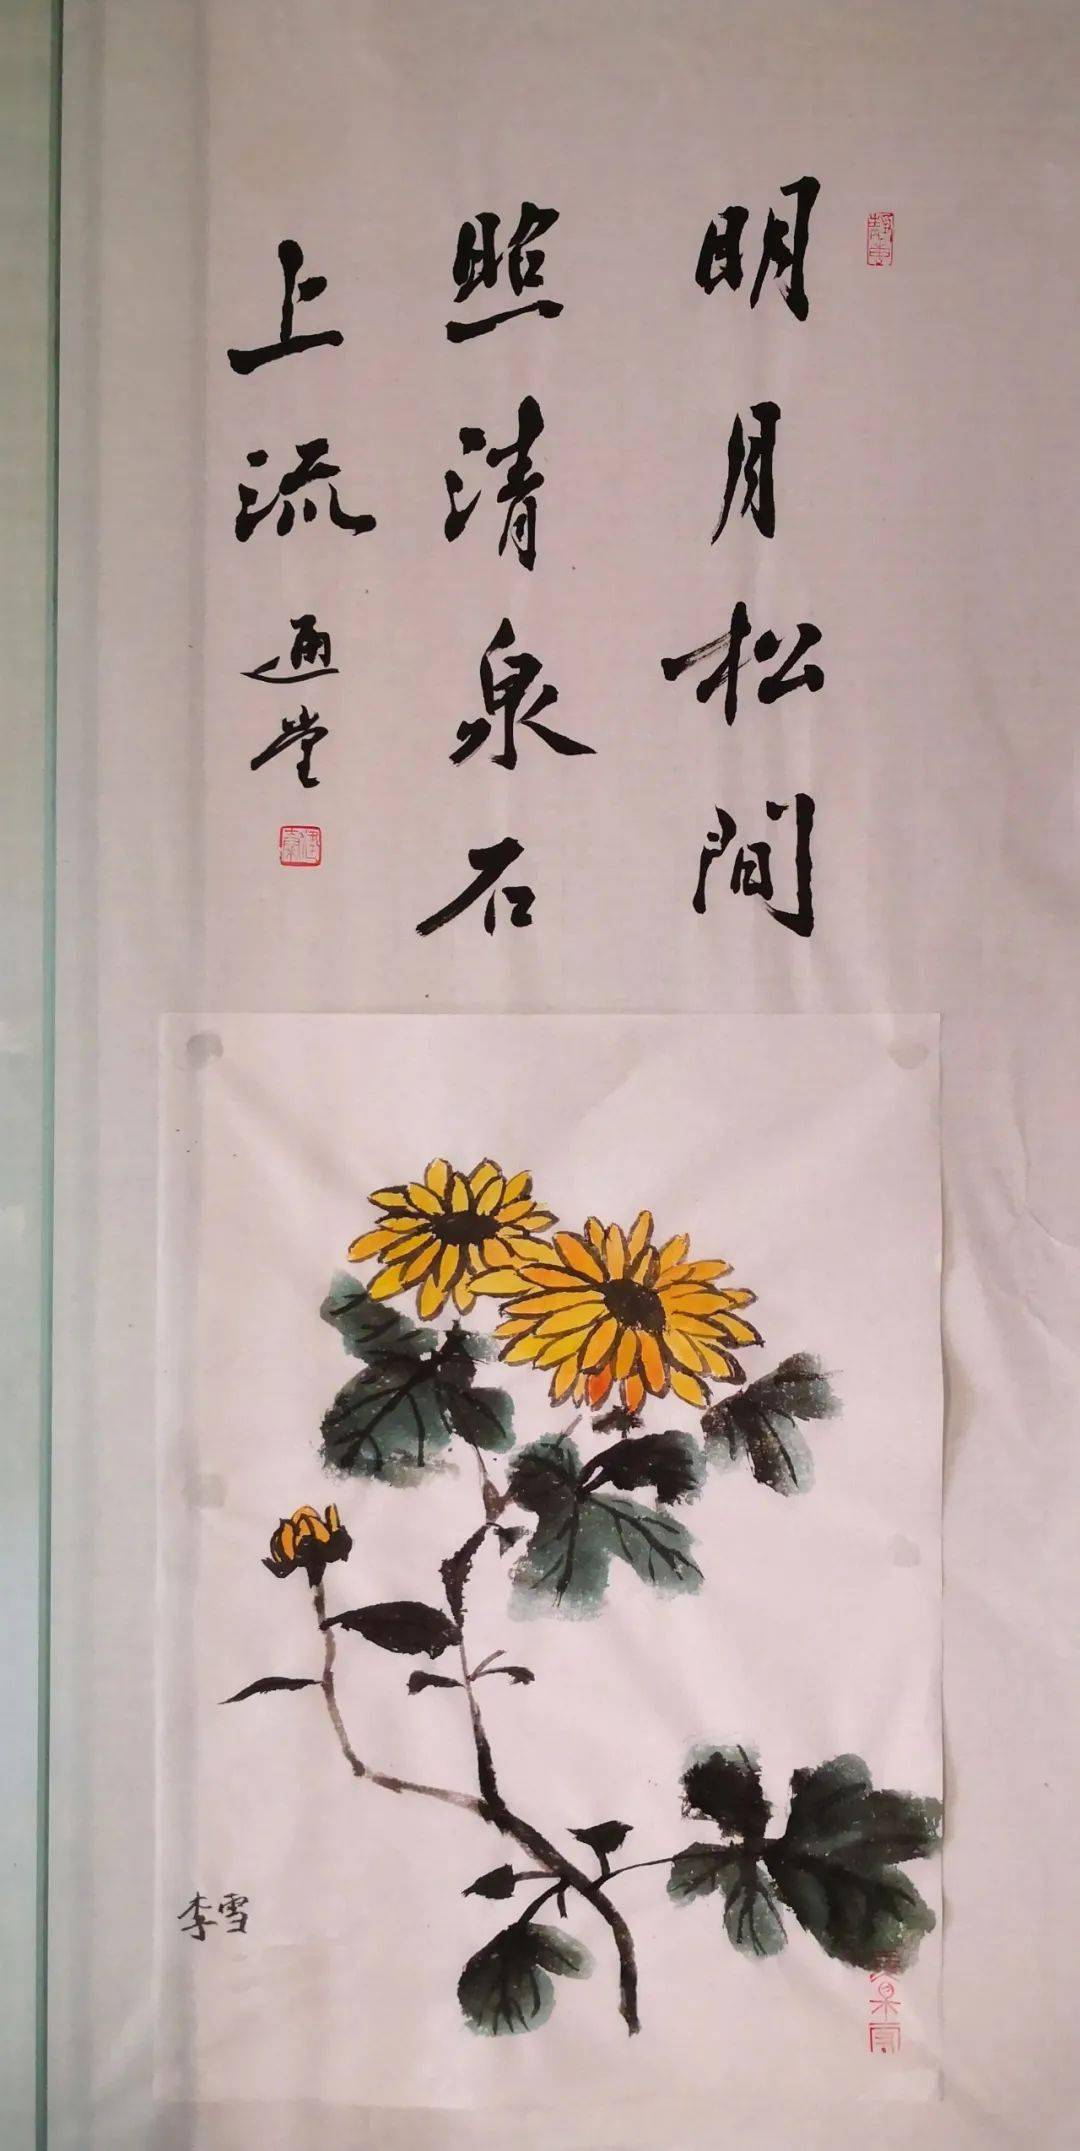 明月松間
照清泉石
上流
李雪